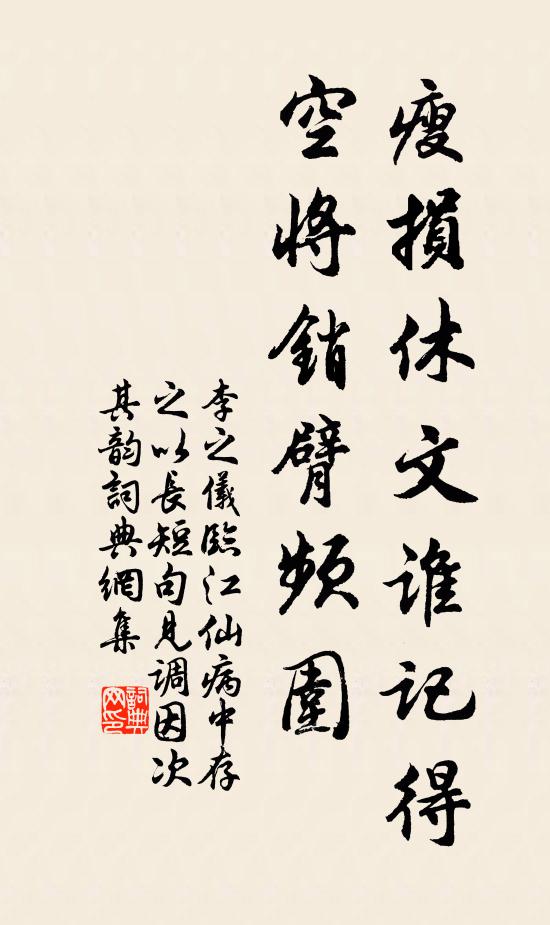 瘦損休文誰記得
空將銷臂頻圍
李之儀臨江仙病中存
之以長短句見調因次
其韵詞典網集
詞典
网印